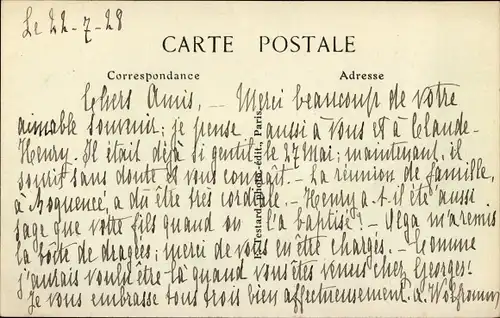 Le 22-7-28
CARTE POSTALE
Correspondance
Adresse
Chers Amis, – Merci beaucoup de votre
aimable souvenir; je pense aussi à vous et à Claude-
Henry. Il était déjà si gentil le 27 Mai; maintenant, il
sourit sans doute et vous connait. – La réunion de famille,
à a dû être très cordiale. – Henry a-t-il été aussi
sage que votre fils quand on l'a baptisé? – Olga m'a remis
la boîte de dragées; merci de vous en être chargés. – Comme
j'aurais voulu être là quand vous êtes venus chez Georges!
Je vous embrasse tous trois bien affectueusement.
photo-édit., Paris